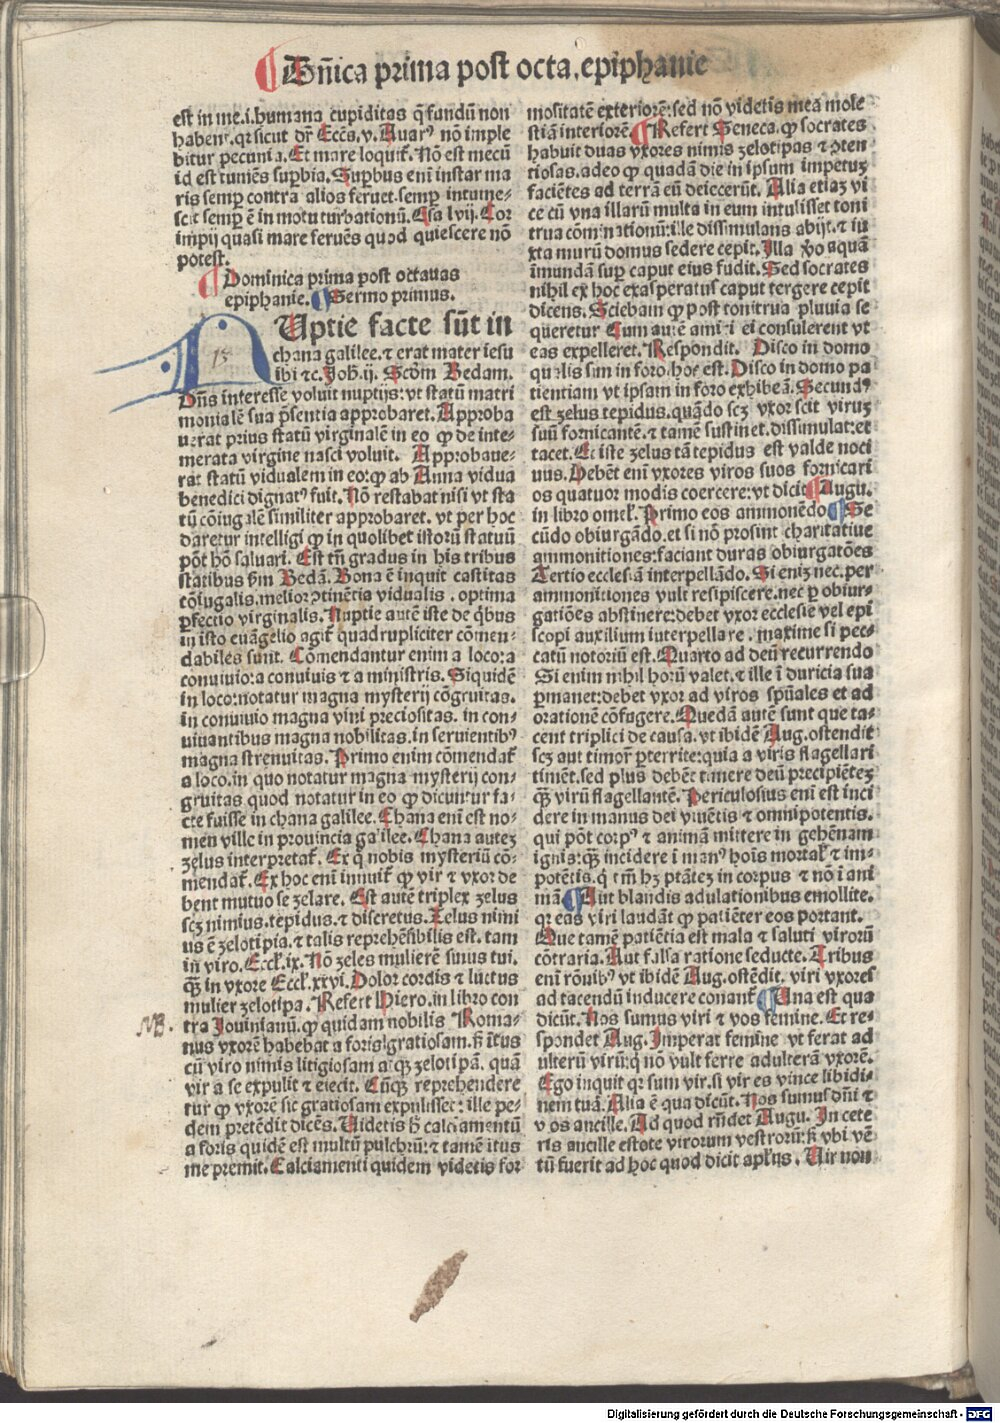 ¶ Dn̄ica prima post octa. epiphanie
est in me.i.humana cupiditas q̄ fundū non
habent.qꝛ sicut dr̄ Ecces̄.v. Auarꝰ nō imple
bitur pecunia. Et mare loquit̄. Nō est mecū
id est tumēs suꝑbia. Suꝑbus eni instar ma
ris semꝑ contra alios feruet.semꝑ intume⸗
scit semꝑ ē in motu turbationū. Esa lvij. Cor
impij quasi mare feruēs quod quiescere nō
potest.
¶ Dominica prima post octauas
epiphanie. ¶ Sermo primus.
Uptie facte sūt in
15
chana galilee.⁊ erat mater iesu
ibi ⁊c. Joh̄.ij. Scḋm Bedam.
Dn̄s interesse voluit nuptijs:vt statū matri
monialē sua p̄sentia approbaret. Approba
uerat prius statū virginalē in eo ꝙ de inte⸗
merata virgine nasci voluit. Approbaue⸗
rat statū vidualem in eo:ꝙ ab Anna vidua
benedici dignatꝰ fuit. Nō restabat nisi vt sta
tū cōiugalē similiter approbaret. vt per hoc
daretur intelligi ꝙ in quolibet istorū statuū
pōt hō saluari. Est tn̄ gradus in his tribus
statibus ẜm Bedā. Bona ē inquit castitas
cōiugalis.melior ↄtinētia vidualis . optima
ꝑfectio virginalis. Nuptie autē iste de q̇bus
in isto euāgelio agit̄ quadrupliciter cōmen⸗
dabiles sunt. Cōmendantur enim a loco:a
conuiuio:a conuiuis ⁊ a ministris. Siquidē
in loco:notatur magna mysterij cōgruitas.
in conuiuio magna vini preciositas. in con⸗
uiuantibus magna nobilitas.in seruientibꝰ
magna strenuitas. Primo enim cōmendat̄
a loco.in quo notatur magna mysterij con⸗
gruitas quod notatur in eo ꝙ dicuntur fa⸗
cte fuisse in chana galilee. Chana eni est no⸗
men ville in prouincia galilee. Chana autez
zelus interpretat̄. Ex q̊ nobis mysteriū cō⸗
mendat̄. Ex hoc eni innuit̄ ꝙ vir ⁊ vxor de
bent mutuo se zelare. Est autē triplex zelus
scz nimius.tepidus.⁊ discretus. Zelus nimi
us ē zelotipia.⁊ talis reprehēsibilis est. tam
in viro. Eccl̄.ix. Nō zeles mulierē sinus tui.
q̄ꝫ in vxore Eccl̄.xxvi. Dolor cordis ⁊ luctus
mulier zelotipa. Refert Hiero.in libro con
NB.
tra Jouinianū.ꝙ quidam nobilis Roma⸗
nus vxorē habebat a foris gratiosam.ẜ ītus
cū viro nimis litigiosam atqꝫ zelotipā. quā
vir a se expulit ⁊ eiecit. Cūqꝫ reprehendere
tur ꝙ vxorē sic gratiosam expulisset: ille pe⸗
dem pretēdit dicēs. Uidetis h̄ calciamentū
a foris quidē est multū pulchrū:⁊ tamē ītus
me premit. Calciamenti quidem videtis for
mositatē exteriorē:sed nō videtis mea mole
stiā interiorē. ¶ Refert Seneca.ꝙ socrates
habuit duas vxores nimis zelotipas ⁊ ↄten
tiosas.adeo ꝙ quadā die in ipsum impetuꝫ
faciētes ad terrā eū deiecerūt. Alia etiaꝫ vi
ce cū vna illarū multa in eum intulisset toni
trua cōminationū:ille dissimulans abijt.⁊ iu
xta murū domus sedere cepit. Illa v̊o aquā
īmundā suꝑ caput eius fudit. Sed socrates
nihil ex hoc exasperatus caput tergere cepit
dicens. Sciebam ꝙ post tonitrua pluuia se
queretur Cum autē amici ei consulerent vt
eas expelleret. Respondit. Disco in domo
qualis sim in foro.hoc est. Disco in domo pa
tientiam vt ipsam in foro exhibeā. Secundꝰ
est zelus tepidus.quādo scꝫ vxor scit viruꝫ
suū fornicantē.⁊ tamē sustinet.dissimulat:et
tacet. Et iste zelus tā tepidus est valde noci
uus. Debēt eni vxores viros suos fornicari
os quatuor modis coercere:vt dicit ¶ Augu.
in libro omel̄. Primo eos ammonēdo. ¶ Se
cūdo obiurgādo.et si nō prosint charitatiue
ammonitiones:faciant duras obiurgatōes
Tertio ecclesiā interpellādo. Si eniꝫ nec.per
ammonitiones vult resipiscere.nec ꝑ obiur⸗
gatiōes abstinere:debet vxor ecclesie vel epi
scopi auxilium interpellare . maxime si pec⸗
catū notoriū est. Quarto ad deū recurrendo
Si enim nihil horū valet.⁊ ille ī duricia sua
ꝑmanet:debet vxor ad viros spūales et ad
orationē cōfugere. Quedā autē sunt que ta⸗
cent triplici de causa. vt ibidē Aug. ostendit
scꝫ aut timor̄ ꝑterrite:quia a viris flagellari
timēt.sed plus debēt timere deū precipiēteꝫ
q̄ꝫ virū flagellantē. Periculosius eni est inci
dere in manus dei viuētis ⁊ omnipotentis.
qui pōt corpꝰ ⁊ animā mittere in gehēnam
ignis:q̄ꝫ incidere ī manꝰ hoīs mortal̄ ⁊ im⸗
potētis.q̇ tm̄ hꝫ ptātez in corpus ⁊ nō ī ani
mā ¶ Aut blandis adulationibus emollite.
qꝛ eas viri laudāt ꝙ patiēter eos portant.
Que tamē patiētia est mala ⁊ saluti virorū
cōtraria. Aut falsa ratione seducte. Tribus
eni rōnibꝰ vt ibidē Aug.ostēdit. viri vxores
ad tacendū inducere conant̄ ¶ Una est qua
dicūt. Nos sumus viri ⁊ vos femine. Et re⸗
spondet Aug. Imperat femine vt ferat ad
ulterū virū:q̇ nō vult ferre adulterā vxorē.
Ego inquit qꝛ sum vir.si vir es vince libidi⸗
nem tuā. Alia ē qua dicūt. Nos sumus dn̄i ⁊
vos ancille. Ad quod rn̄det Augu. In cete
ris ancille estote virorum vestrorū:ẜ vbi vē⸗
tū fuerit ad hoc quod dicit apl̄us. Uir non
Digitalisierung gefördert durch die Deutsche Forschungsgemeinschaft - DFG